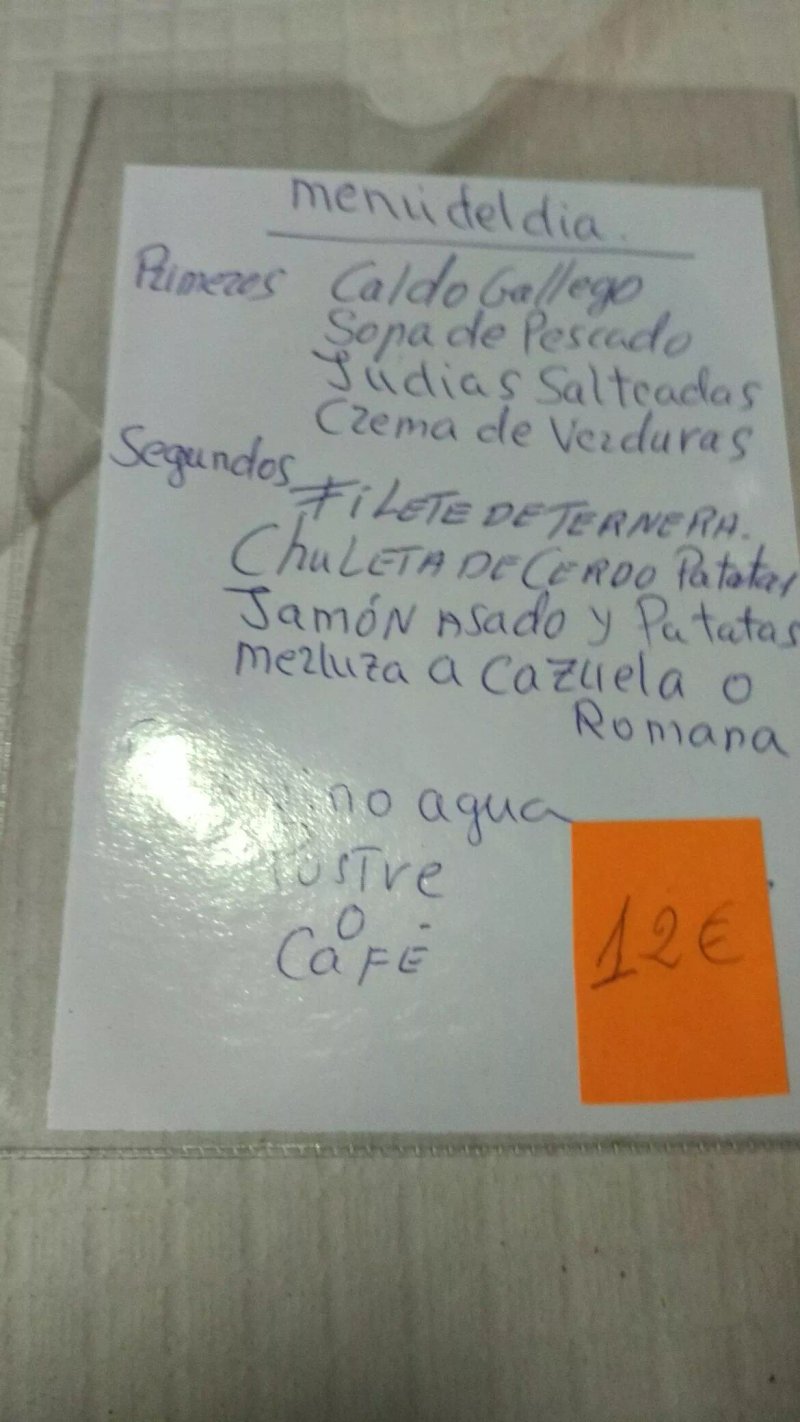 menú del dia.
Primeros Caldo Gallego
Sopa de Pescado
Judias Salteadas
Crema de Verduras
Segundos FiLETE DE TERNERA.
ChuLETA DE CERDO Patatas
Jamón Asado y Patatas
merluza a cazuela o
Romana
Vino agua
Postre
o
CaFÉ
12€